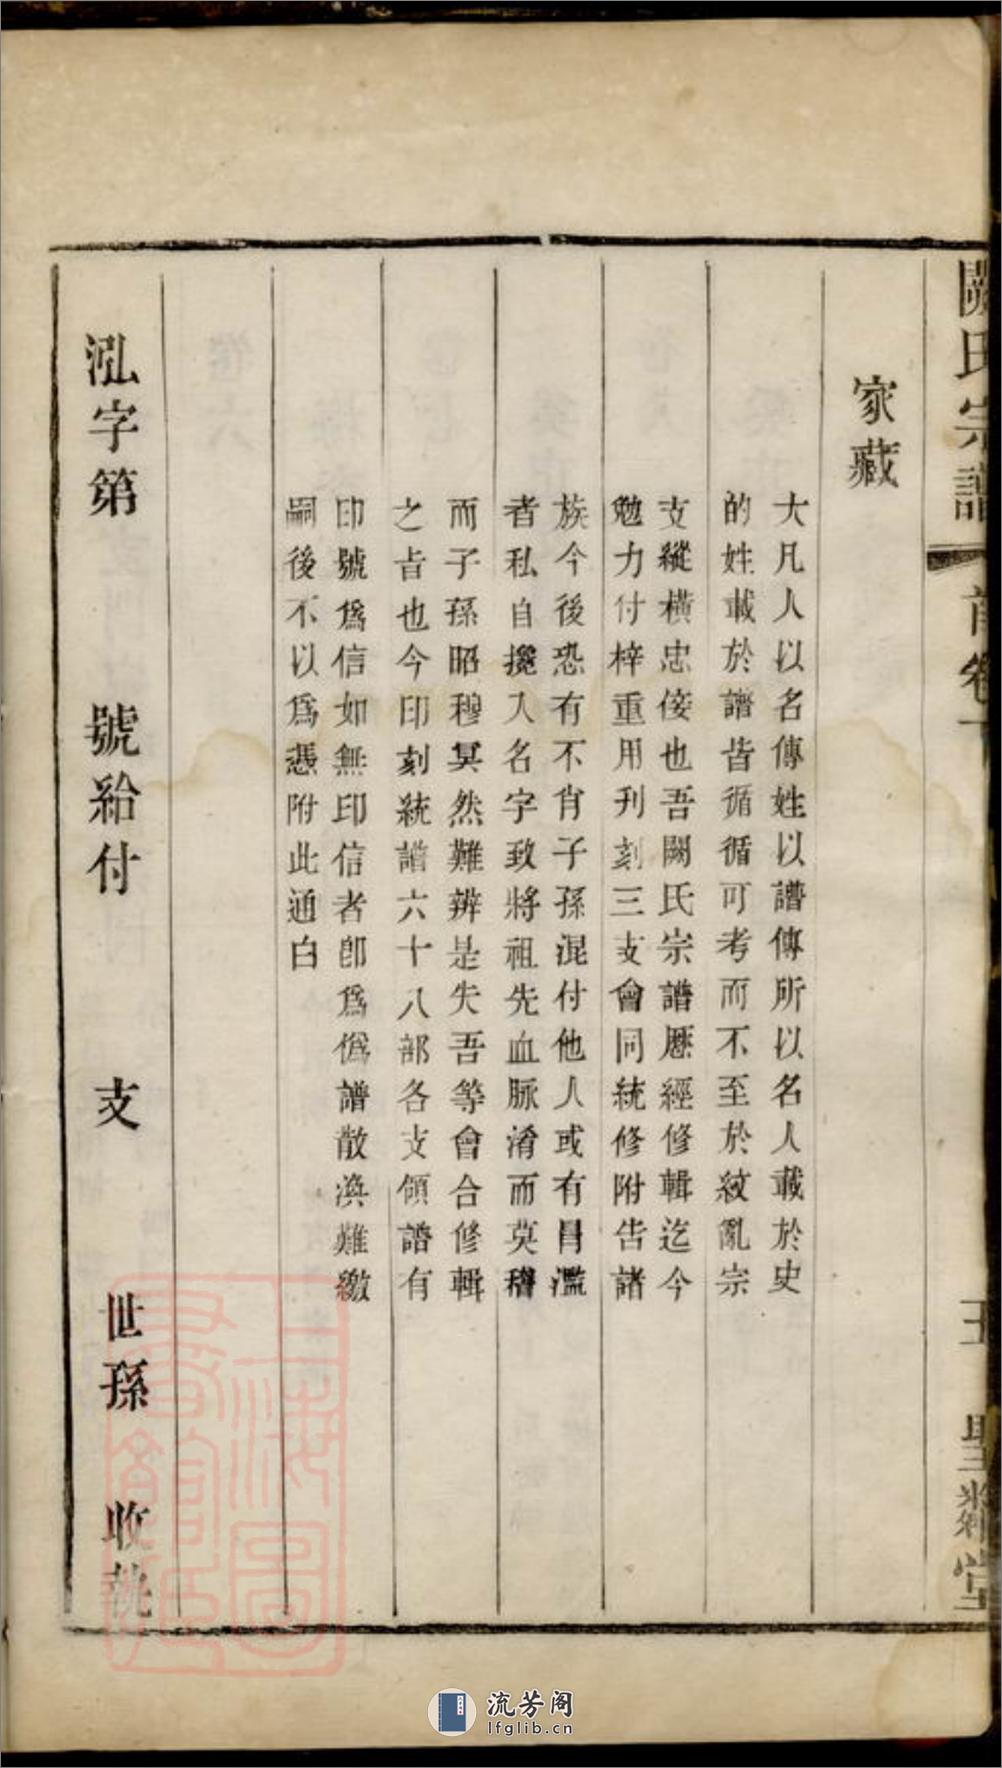 闕氏宗譜
首卷下
聖殺堂
家藏
大凡人以名傳姓以譜傳所以名人載於史
的姓載於譜皆循循可考而不至於紋亂宗
支縱横忠倿也吾闕氏宗譜歷經修輯迄今
勉力付梓重用刋刻三支會同統修附告諸
族今後恐有不肖子孫混付他人或有冐濫
者私自攙入名字致將祖先血脉淆而莫稽
而子孫昭穆㝠然難辨是失吾等會合修輯
之㫖也今印刻統譜六十八部各支領譜有
印號爲信如無印信者卽爲僞譜散渙難繳
嗣後不以爲憑附此通白
泓字第 號給付 支 世孫 收執
上海圖書館藏
流芳阁
lfglib.cn